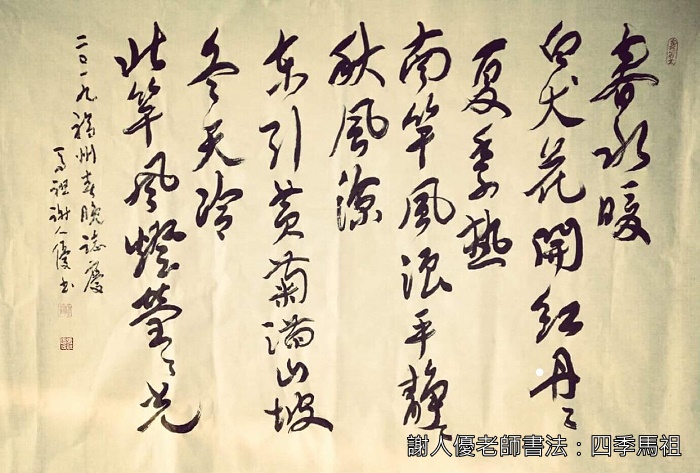 春水暖
白犬花開紅丹々
夏季熱
南竿風浪平靜々
秋風涼
東引黃菊滿山坡
冬天冷
北竿風燈螢々光
二〇一九福州春晚誌慶
馬祖謝人優書
謝人優老師書法：四季馬祖